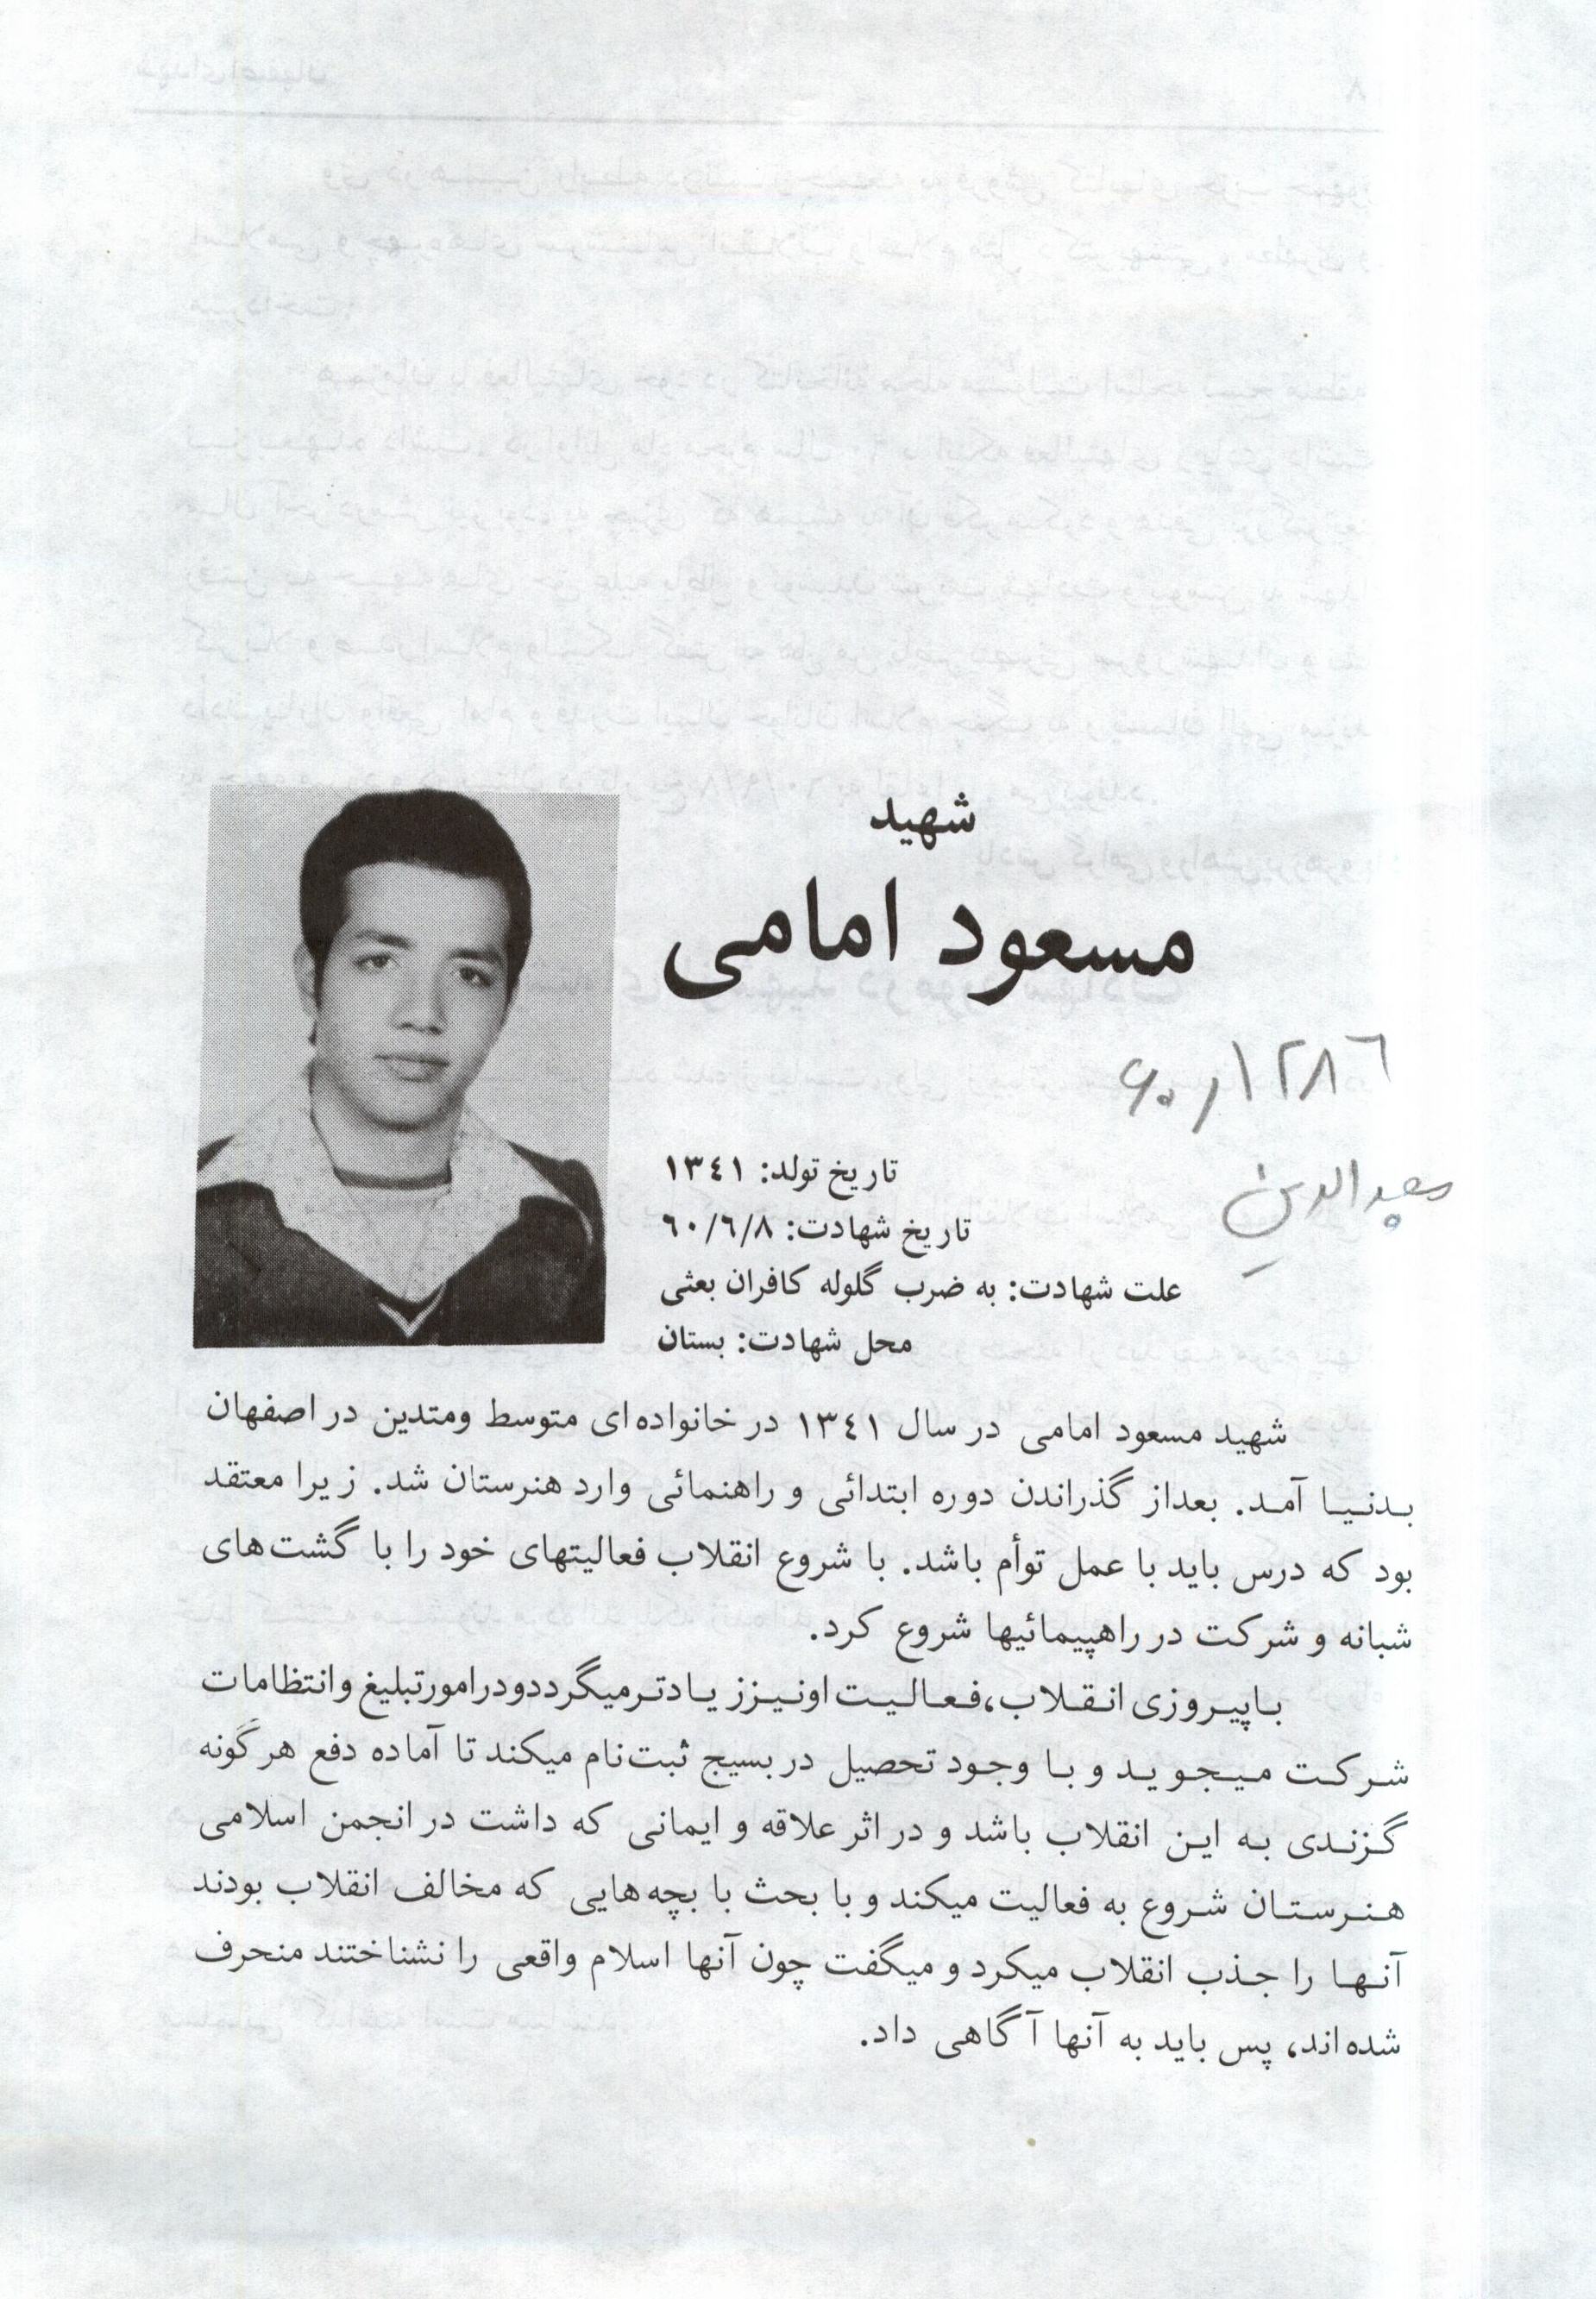 شهید
مسعود امامی
تاریخ تولد: ۱۳٤۱
تاریخ شهادت: ٦۰/٦/۸
علت شهادت: به ضرب گلوله کافران بعثی
محل شهادت: بستان
شهید مسعود امامی در سال ۱۳٤۱ در خانواده‌ای متوسط ومتدین در اصفهان
بدنیا آمد. بعداز گذراندن دوره ابتدائی و راهنمائی وارد هنرستان شد. زیرا معتقد
بود که درس باید با عمل توأم باشد. با شروع انقلاب فعالیتهای خود را با گشت‌های
شبانه و شرکت در راهپیمائیها شروع کرد.
باپیروزی انقلاب، فعالیت اونیززیادترمیگرددودرامورتبلیغ وانتظامات
شرکت میجوید و با وجود تحصیل در بسیج ثبت‌نام میکند تا آماده دفع هرگونه
گزندی به این انقلاب باشد و در اثر علاقه و ایمانی که داشت در انجمن اسلامی
هنرستان شروع به فعالیت میکند و با بحث با بچه‌هایی که مخالف انقلاب بودند
آنها را جذب انقلاب میکرد و میگفت چون آنها اسلام واقعی را نشناختند منحرف
شده‌اند، پس باید به آنها آگاهی داد.